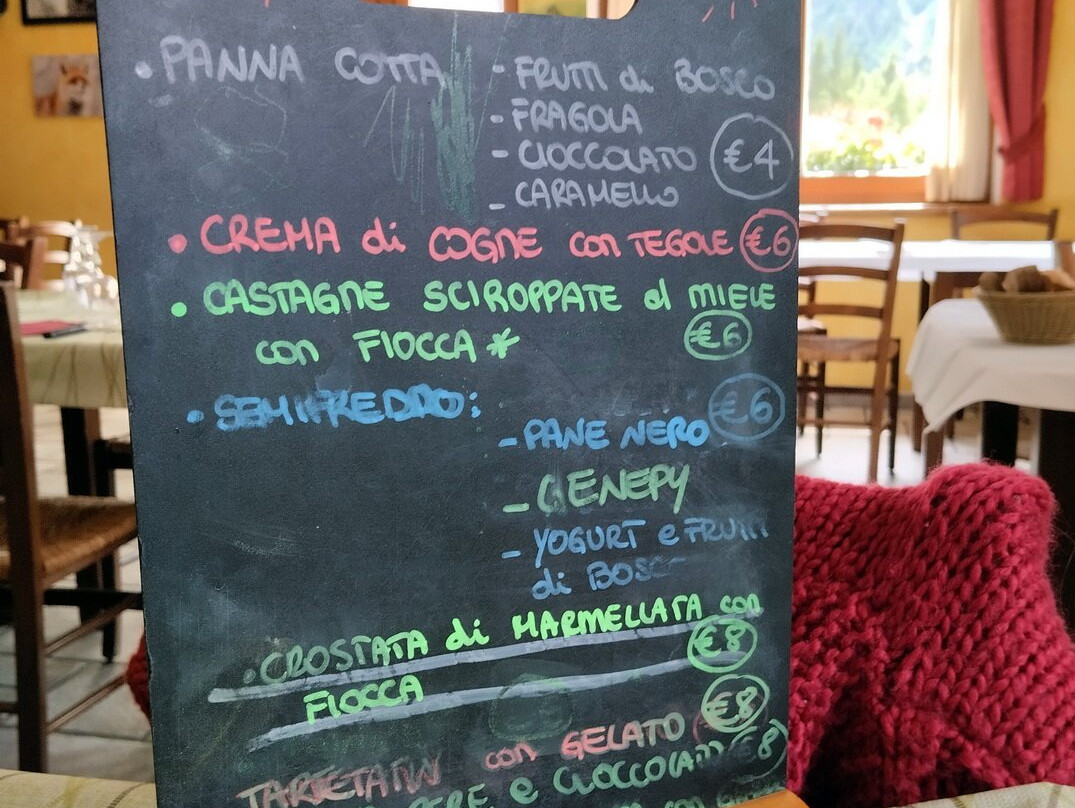 • PANNA COTTA - FRUTTI di BOSCO
- FRAGOLA
- CIOCCOLATO €4
- CARAMELLO
• CREMA di COGNE con TEGOLE €6
• CASTAGNE SCIROPPATE al MIELE
con FIOCCA * €6
• SEMIFREDDO: €6
- PANE NERO
- GENEPY
- YOGURT e FRUTTI
di BOSCO
• CROSTATA di MARMELLATA con
FIOCCA €8
€8
con GELATO
PERE e CIOCCOLATO €8